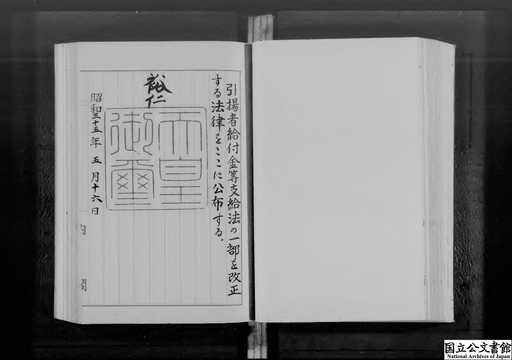 引揚者給付金等支給法の一部を改正
する法律をここに公布する。
裕仁
天皇
御璽
昭和三十五年五月十六日
内閣
国立公文書館
National Archives of Japan